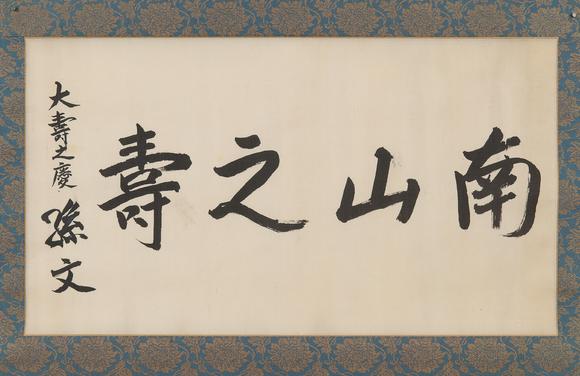 南山之壽
大壽之慶
孫文